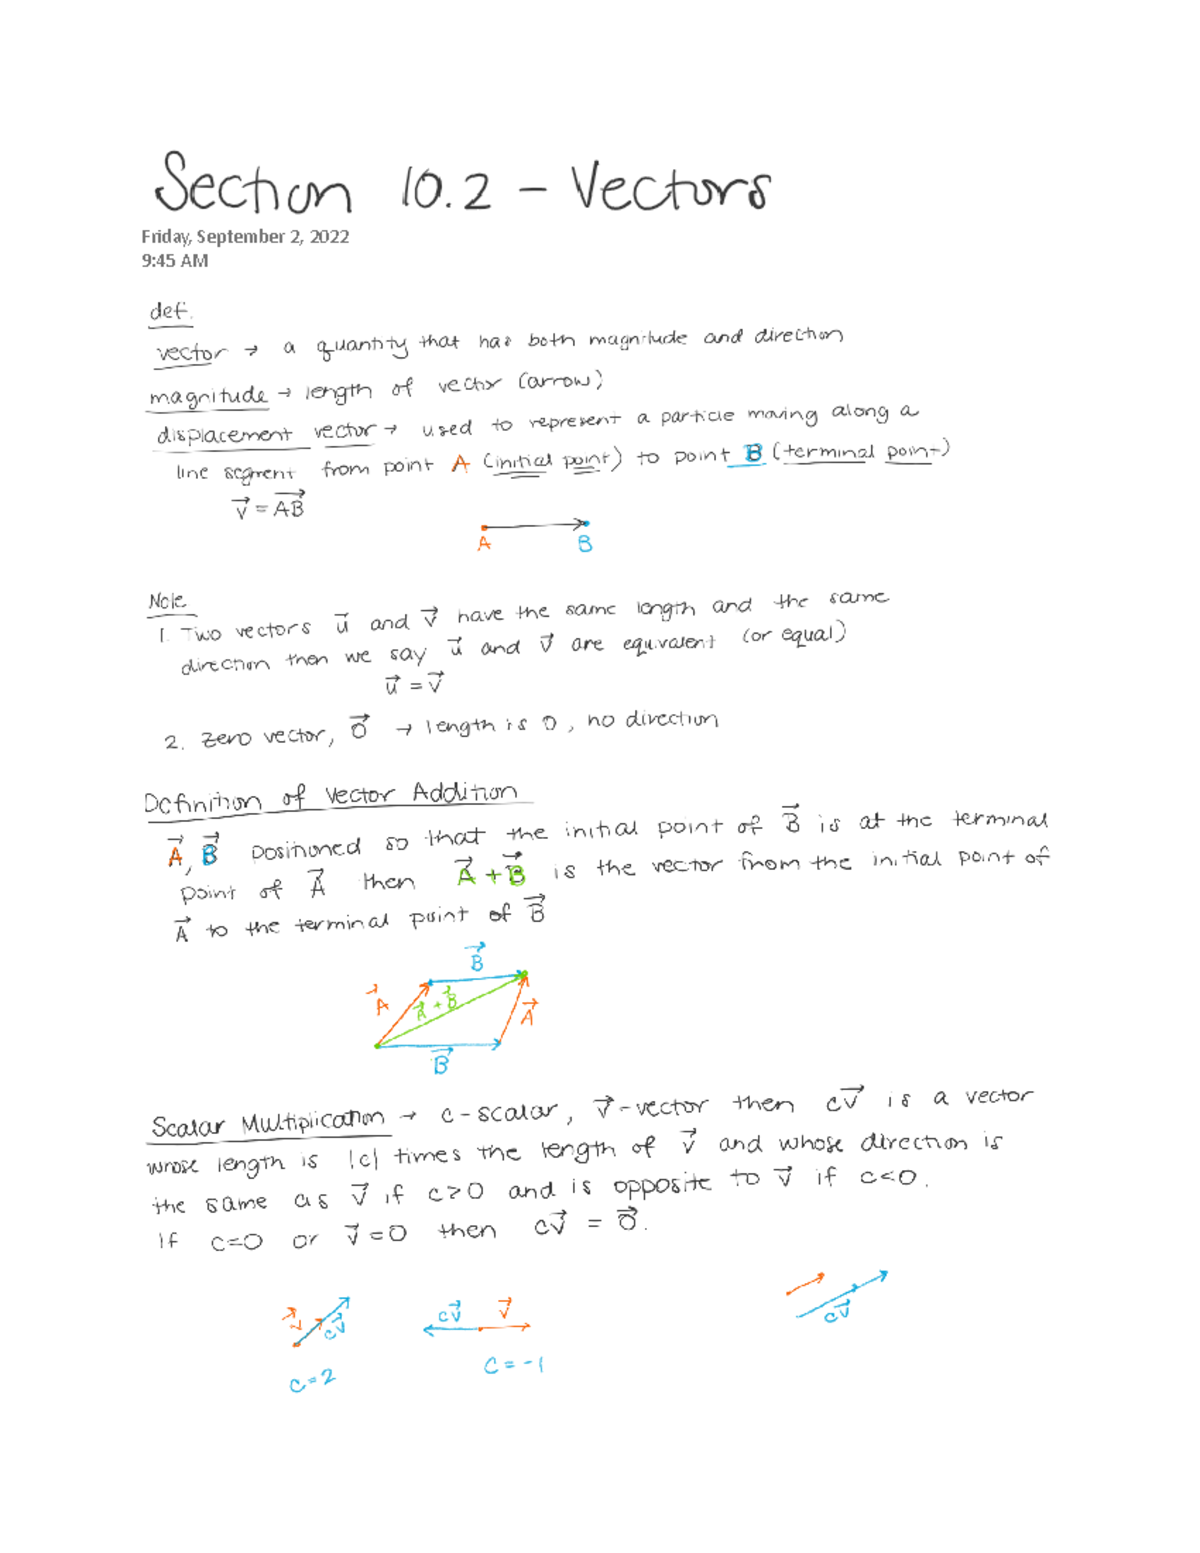 Section 10.2 - Vectors
Friday, September 2, 2022
9:45 AM
def.
vector → a quantity that has both magnitude and direction
magnitude → length of vector (arrow)
displacement vector → used to represent a particle moving along a
line segment from point A (initial point) to point B (terminal point)
v⃗ = A͞B⃗
A B
Note
1. Two vectors u⃗ and v⃗ have the same length and the same
direction then we say u⃗ and v⃗ are equivalent (or equal)
u⃗ = v⃗
2. zero vector, 0⃗ → length is 0, no direction
Definition of Vector Addition
A⃗, B⃗ positioned so that the initial point of B⃗ is at the terminal
point of A⃗ then A⃗ + B⃗ is the vector from the initial point of
A⃗ to the terminal point of B⃗
B⃗
A⃗ A⃗ + B⃗ A⃗
B⃗
Scalar Multiplication → c - scalar, v⃗ - vector then cv⃗ is a vector
wrose length is |c| times the length of v⃗ and whose direction is
the same as v⃗ if c>0 and is opposite to v⃗ if c<0.
If c=0 or v⃗=0 then cv⃗ = 0⃗.
v⃗ cv⃗ cv⃗ v⃗ cv⃗
c=2 c=-1